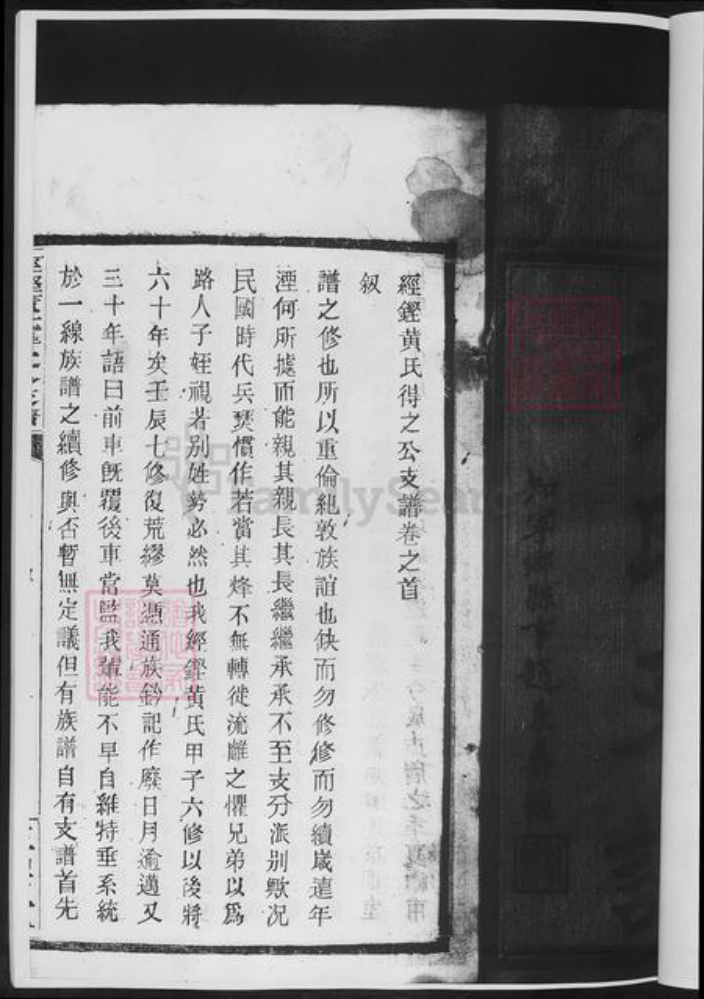 經鏗黃氏得之公支譜卷之首
叙
譜之修也所以重倫紀敦族誼也缺而勿修修而勿續歲遠年
湮何所據而能親其親長其長繼繼承承不至支分派別歟况
民國時代兵燹慣作若當其烽不無轉徙流離之懼兄弟以爲
路人子姪視若别姓勢必然也我經鏗黃氏甲子六修以後將
六十年矣壬辰七修復荒繆莫憑通族鈐記作廢日月逾邁又
三十年語曰前車旣覆後車當監我輩能不早自維持垂系統
於一線族譜之續修與否暫無定議但有族譜自有支譜首先
FamilySearch